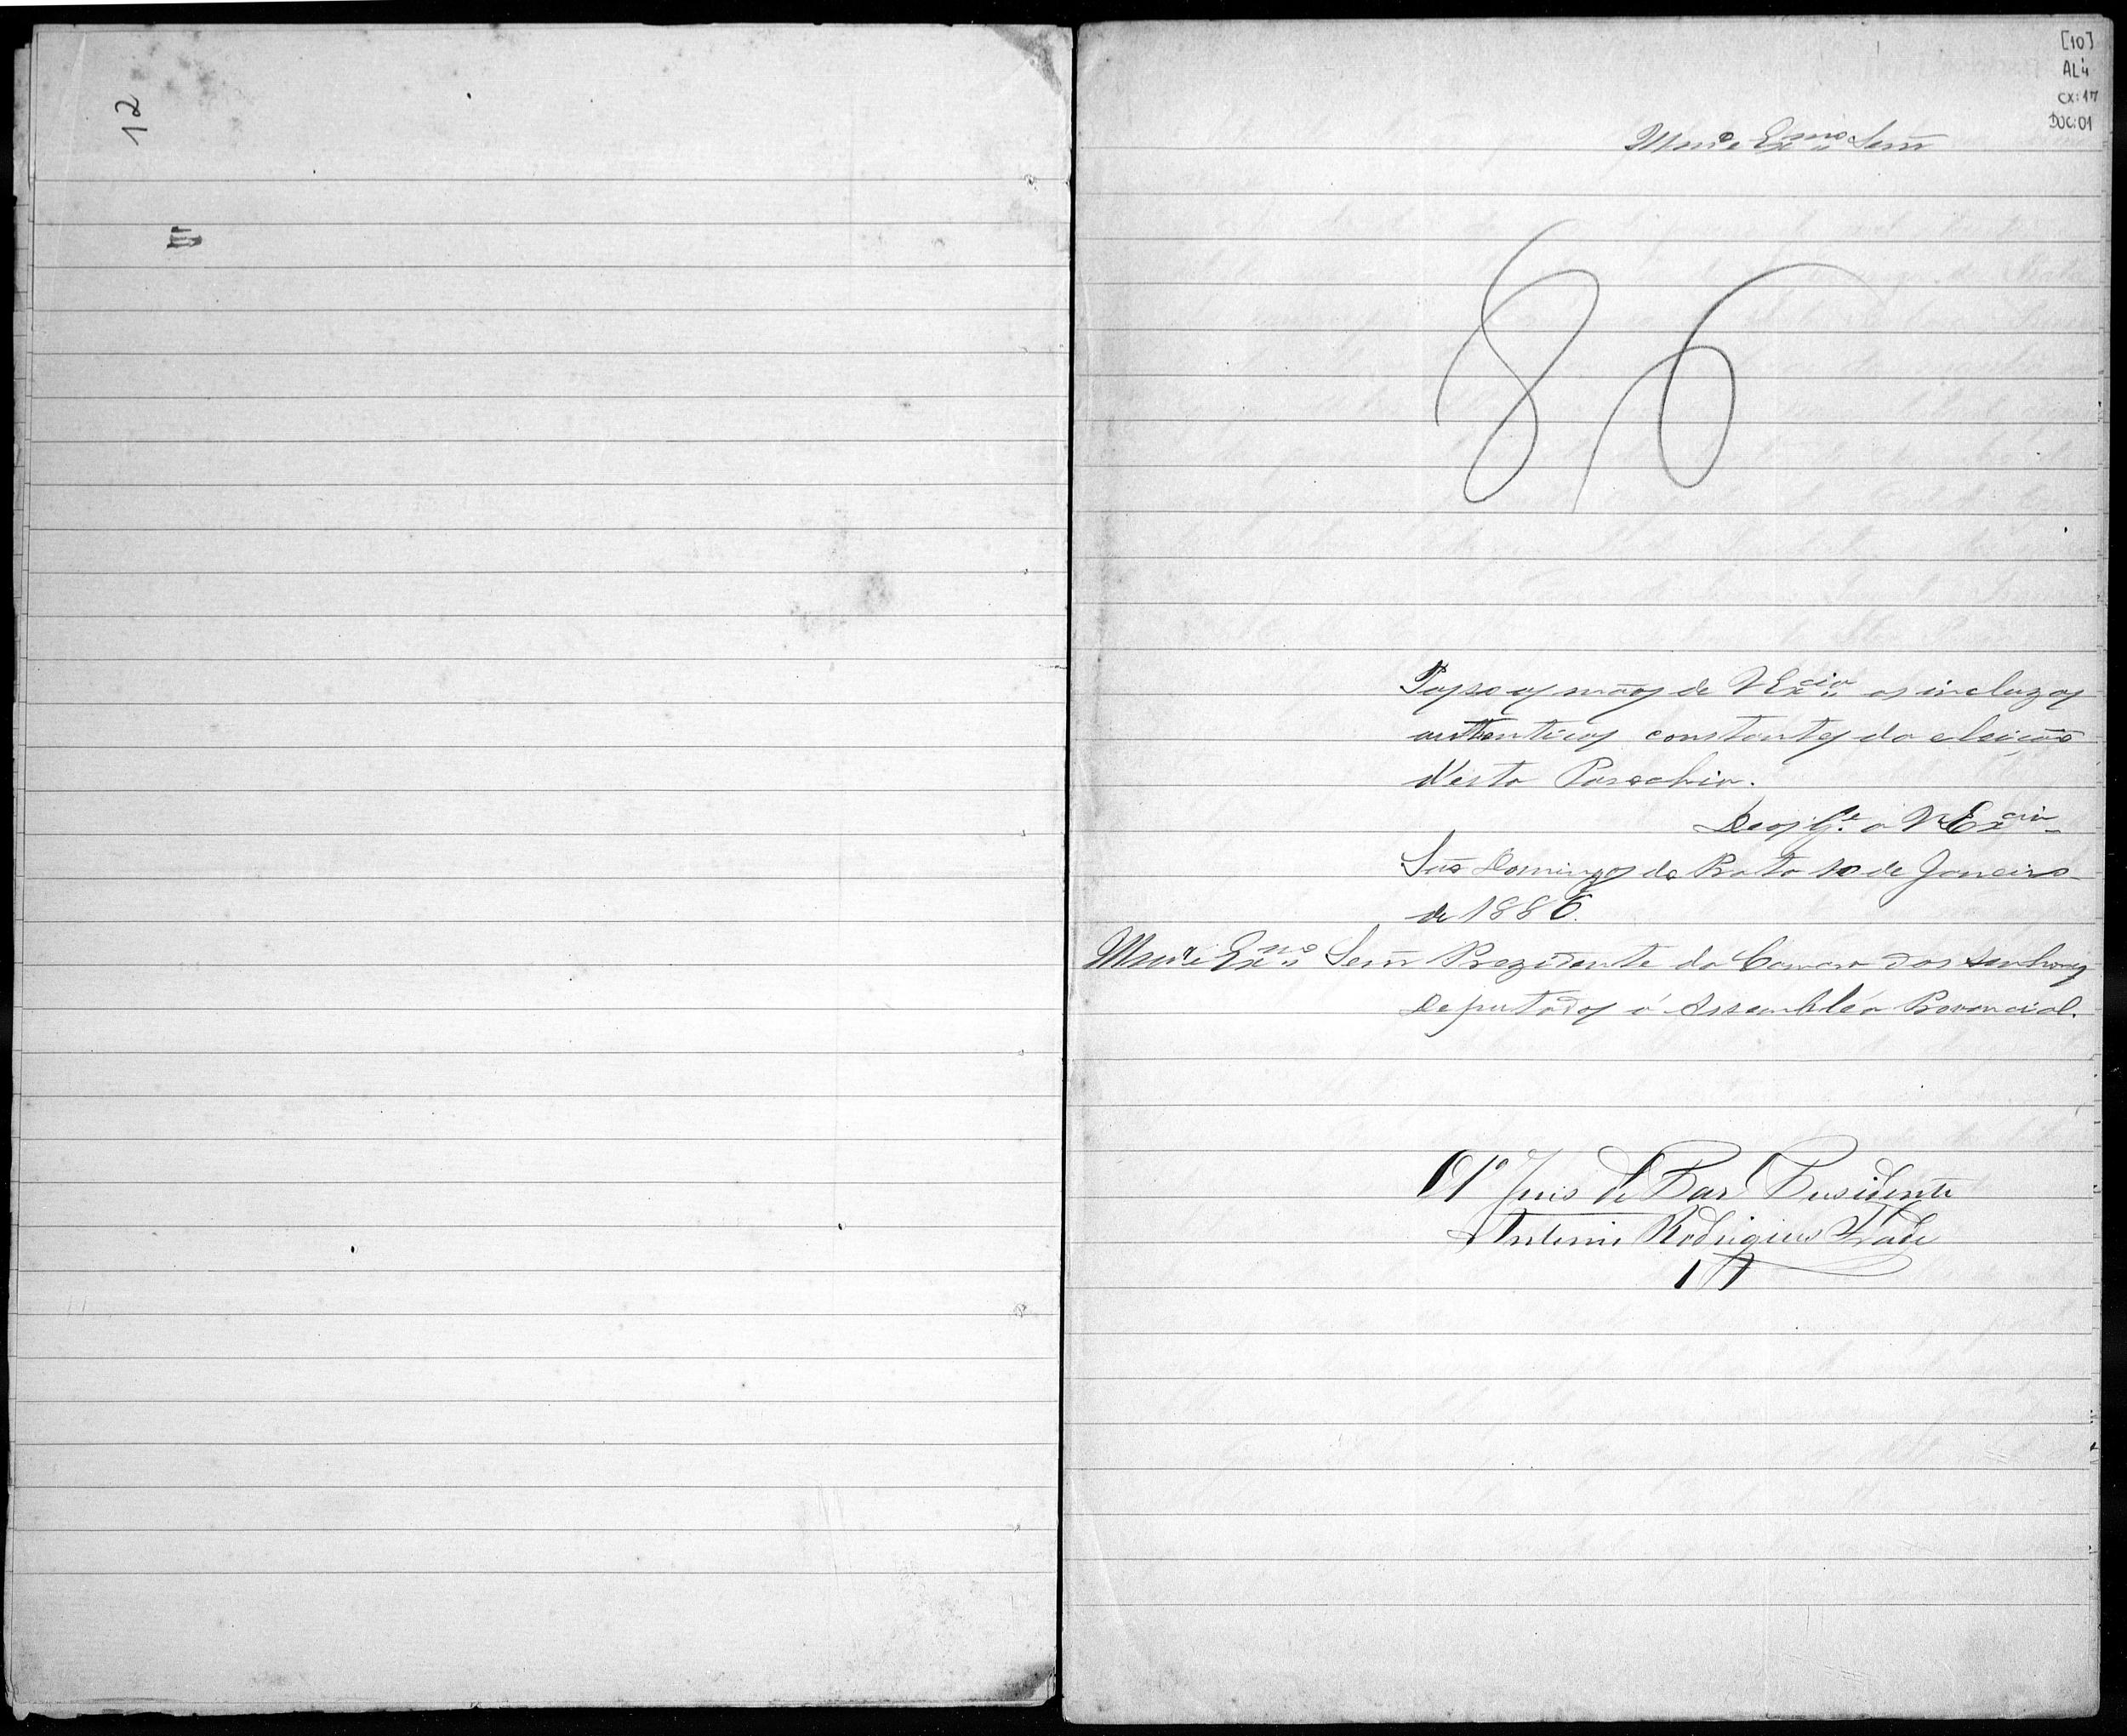 12
[10]
AL4
CX:17
DOC:01
Exmo Senr
86
Passo as mãos de VExcia as incluzas
authenticas constantes da eleição
d'esta Parochia.
Deos Ge a VExcia
São Domingos do Prata 10 de Janeiro
de 1886.
Exmo Senr Prezidente da Camara dos Senhores
Deputados á Assembléa Provincial.
O 1º Juis de Pas Presidente
Antonio Rodrigues Frade